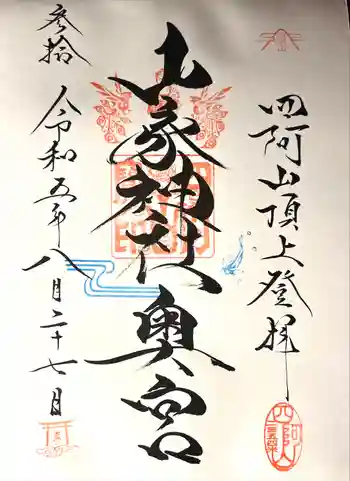 四阿山頂上登拝
山家神社奥宮
令和五年八月二十七日
参拾
四阿山